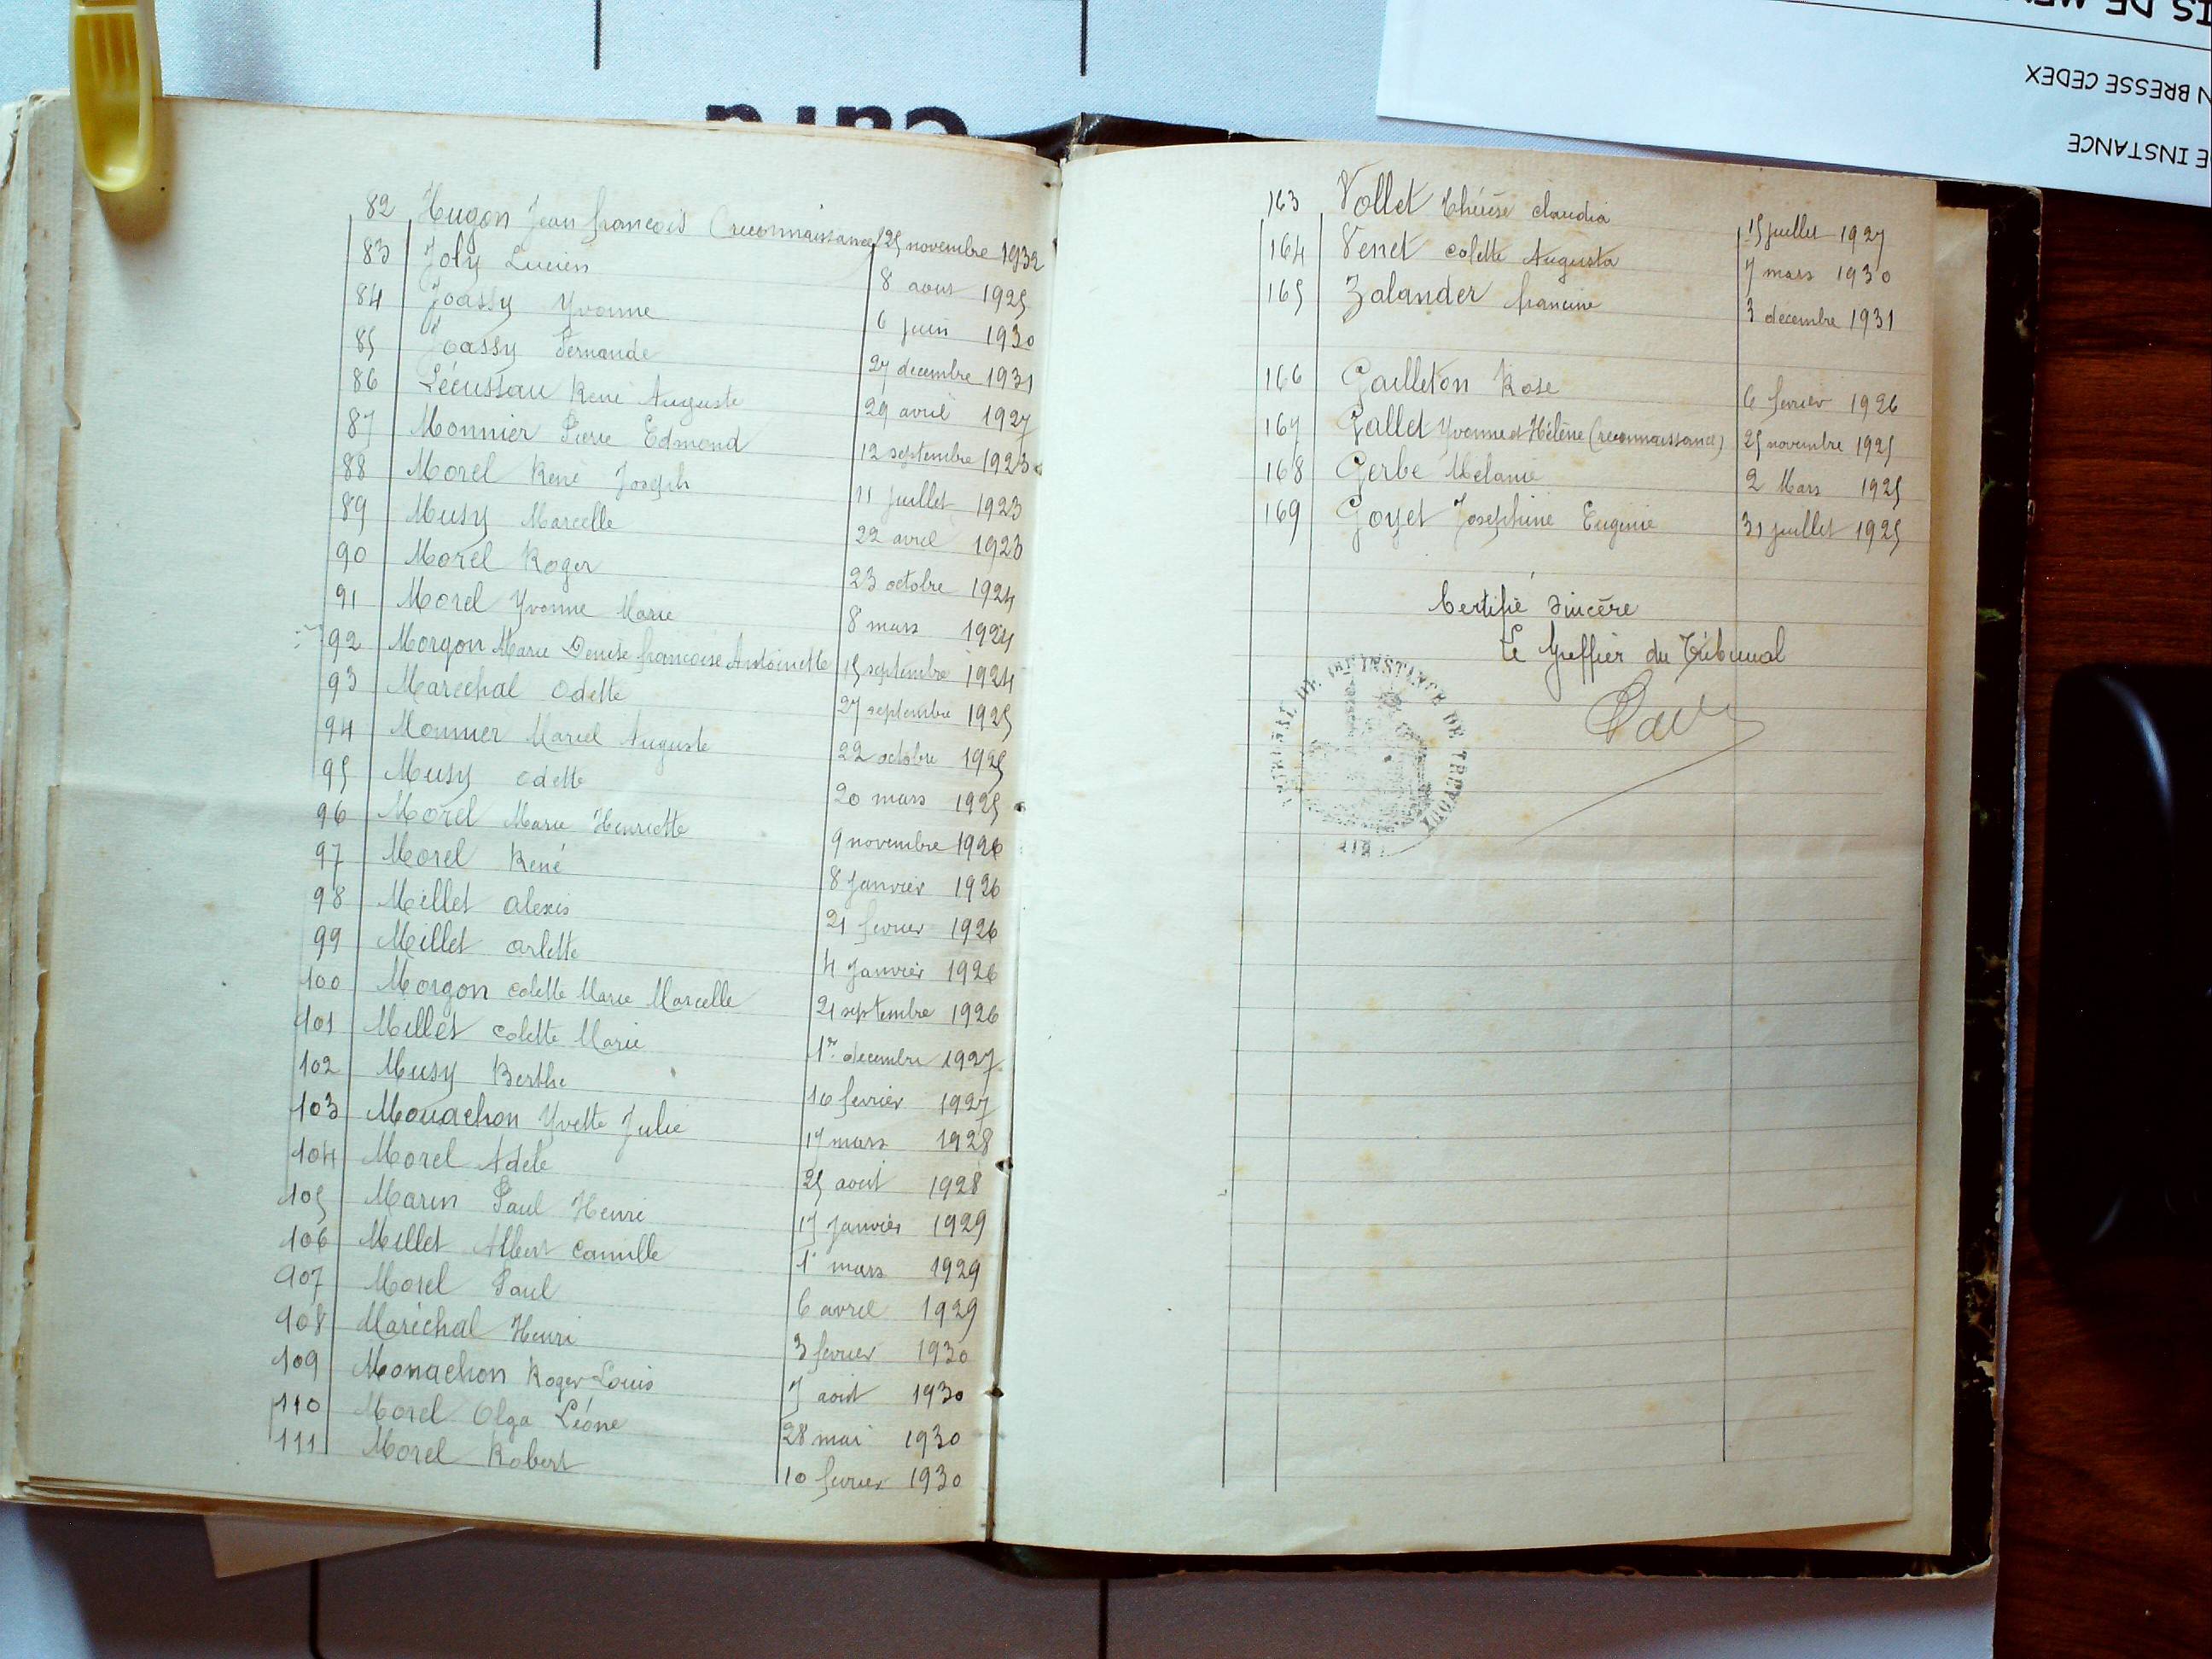 IS DE ME
N BRESSE CEDEX
E INSTANCE
82 Hugon Jean françois (reconnaissance) 25 novembre 1932
83 Joly Lucien 8 aout 1925
84 Joassy Yvonne 6 juin 1930
85 Joassy Fernande 27 decembre 1931
86 Lécussau René Auguste 29 avril 1927
87 Monnier Pierre Edmond 12 septembre 1923
88 Morel René Joseph 11 juillet 1923
89 Musy Marcelle 22 avril 1923
90 Morel Roger 23 octobre 1924
91 Morel Yvonne Marie 8 mars 1924
92 Morgon Marie Denise françoise Antoinette 15 septembre 1924
93 Marechal Odette 27 septembre 1925
94 Monnier Marcel Auguste 22 octobre 1925
95 Musy Odette 20 mars 1925
96 Morel Marie Henriette 9 novembre 1926
97 Morel René 8 Janvier 1926
98 Millet alexis 21 fevrier 1926
99 Millet arlette 4 Janvier 1926
100 Morgon colette Marie Marcelle 21 septembre 1926
101 Millet colette Marie 1er decembre 1927
102 Musy Berthe 16 fevrier 1927
103 Monachon Yvette Julie 17 mars 1928
104 Morel Adele 25 aout 1928
105 Marin Paul Henri 15 Janvier 1929
106 Millet Albert Camille 1er mars 1929
107 Morel Paul 6 avril 1929
108 Maréchal Henri 3 fevrier 1930
109 Monachon Roger Louis 7 aout 1930
110 Morel Olga Léone 28 mai 1930
111 Morel Robert 10 fevrier 1930
163 Vollet Thérèse claudia 15 juillet 1927
164 Venet colette Augusta 7 mars 1930
165 Zalander francine 3 décembre 1931
166 Gailleton Rose 6 fevrier 1926
167 Gallet Yvonne et Hélène (reconnaissance) 25 novembre 1925
168 Gerbe Melanie 2 Mars 1925
169 Goyet Josephine Eugenie 31 juillet 1925
Certifié sincère
Le Greffier du Tribunal
TRIBUNAL DE 1ERE INSTANCE DE TREVOUX